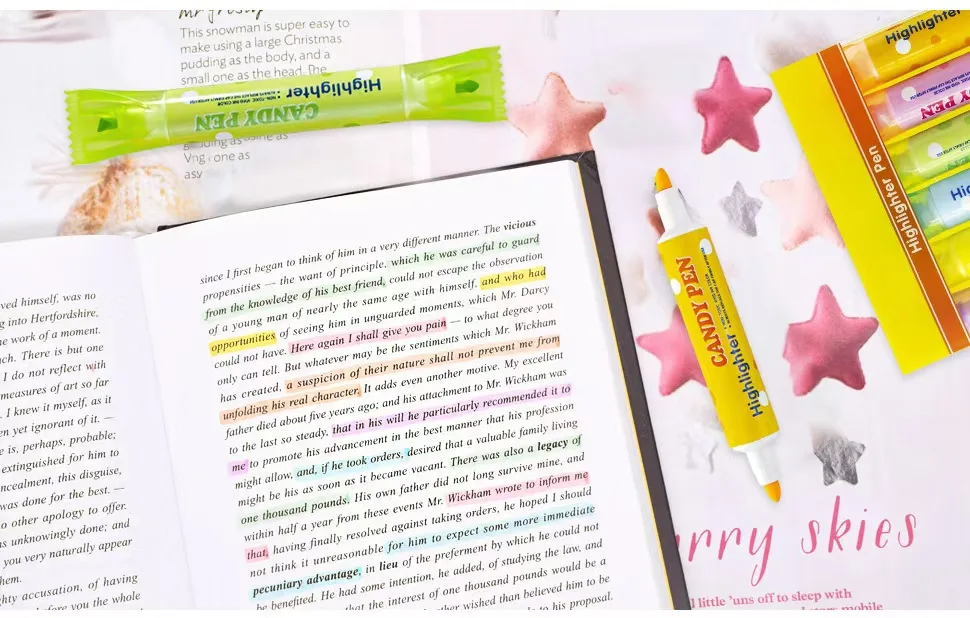 mr frosty
This snowman is super easy to
make using a large Christmas
pudding as the body, and a
small one as the head. The
Highlighter
CANDY PEN
as
one as
asy
Highlighter
Highlighter Pen
CANDY PEN
Highlighter
ved himself, was no
g into Hertfordshire,
he work of a moment.
ch. There is but one
I do not reflect with
measures of art so far
. I knew it myself, as it
en yet ignorant of it. —
e is, perhaps, probable;
extinguished for him to
ncealment, this disguise,
was done for the best. —
o other apology to offer.
s unknowingly done; and
you very naturally appear
hem.
ghty accusation, of having
before you the whole
since I first began to think of him in a very different manner. The vicious
propensities — the want of principle, which he was careful to guard
from the knowledge of his best friend, could not escape the observation
of a young man of nearly the same age with himself, and who had
opportunities of seeing him in unguarded moments, which Mr. Darcy
could not have. Here again I shall give you pain — to what degree you
only can tell. But whatever may be the sentiments which Mr. Wickham
has created, a suspicion of their nature shall not prevent me from
unfolding his real character. It adds even another motive. My excellent
father died about five years ago; and his attachment to Mr. Wickham was
to the last so steady, that in his will he particularly recommended it to
me to promote his advancement in the best manner that his profession
might allow, and, if he took orders, desired that a valuable family living
might be his as soon as it became vacant. There was also a legacy of
one thousand pounds. His own father did not long survive mine, and
within half a year from these events Mr. Wickham wrote to inform me
that, having finally resolved against taking orders, he hoped I should
not think it unreasonable for him to expect some more immediate
pecuniary advantage, in lieu of the preferment by which he could not
be benefited. He had some intention, he added, of studying the law, and
that the interest of one thousand pounds would be a
ther wished than believed him to be
to his proposal.
rry skies
l little 'uns off to sleep with
mobile